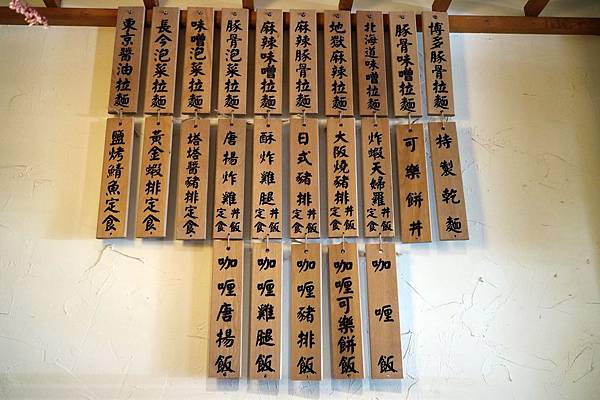 博多豚骨拉麵
豚骨味噌拉麵
北海道味噌拉麵
地獄麻辣拉麵
麻辣豚骨拉麵
麻辣味噌拉麵
豚骨泡菜拉麵
味噌泡菜拉麵
長今泡菜拉麵
東京醬油拉麵
特製乾麵
可樂餅丼
炸蝦天婦羅丼飯定食
大阪燒豬排丼飯定食
日式豬排丼飯定食
酥炸雞腿丼飯定食
唐揚炸雞丼飯定食
塔塔醬豬排定食
黃金蝦排定食
鹽烤鯖魚定食
咖喱飯
咖喱可樂餅飯
咖喱豬排飯
咖喱雞腿飯
咖喱唐揚飯